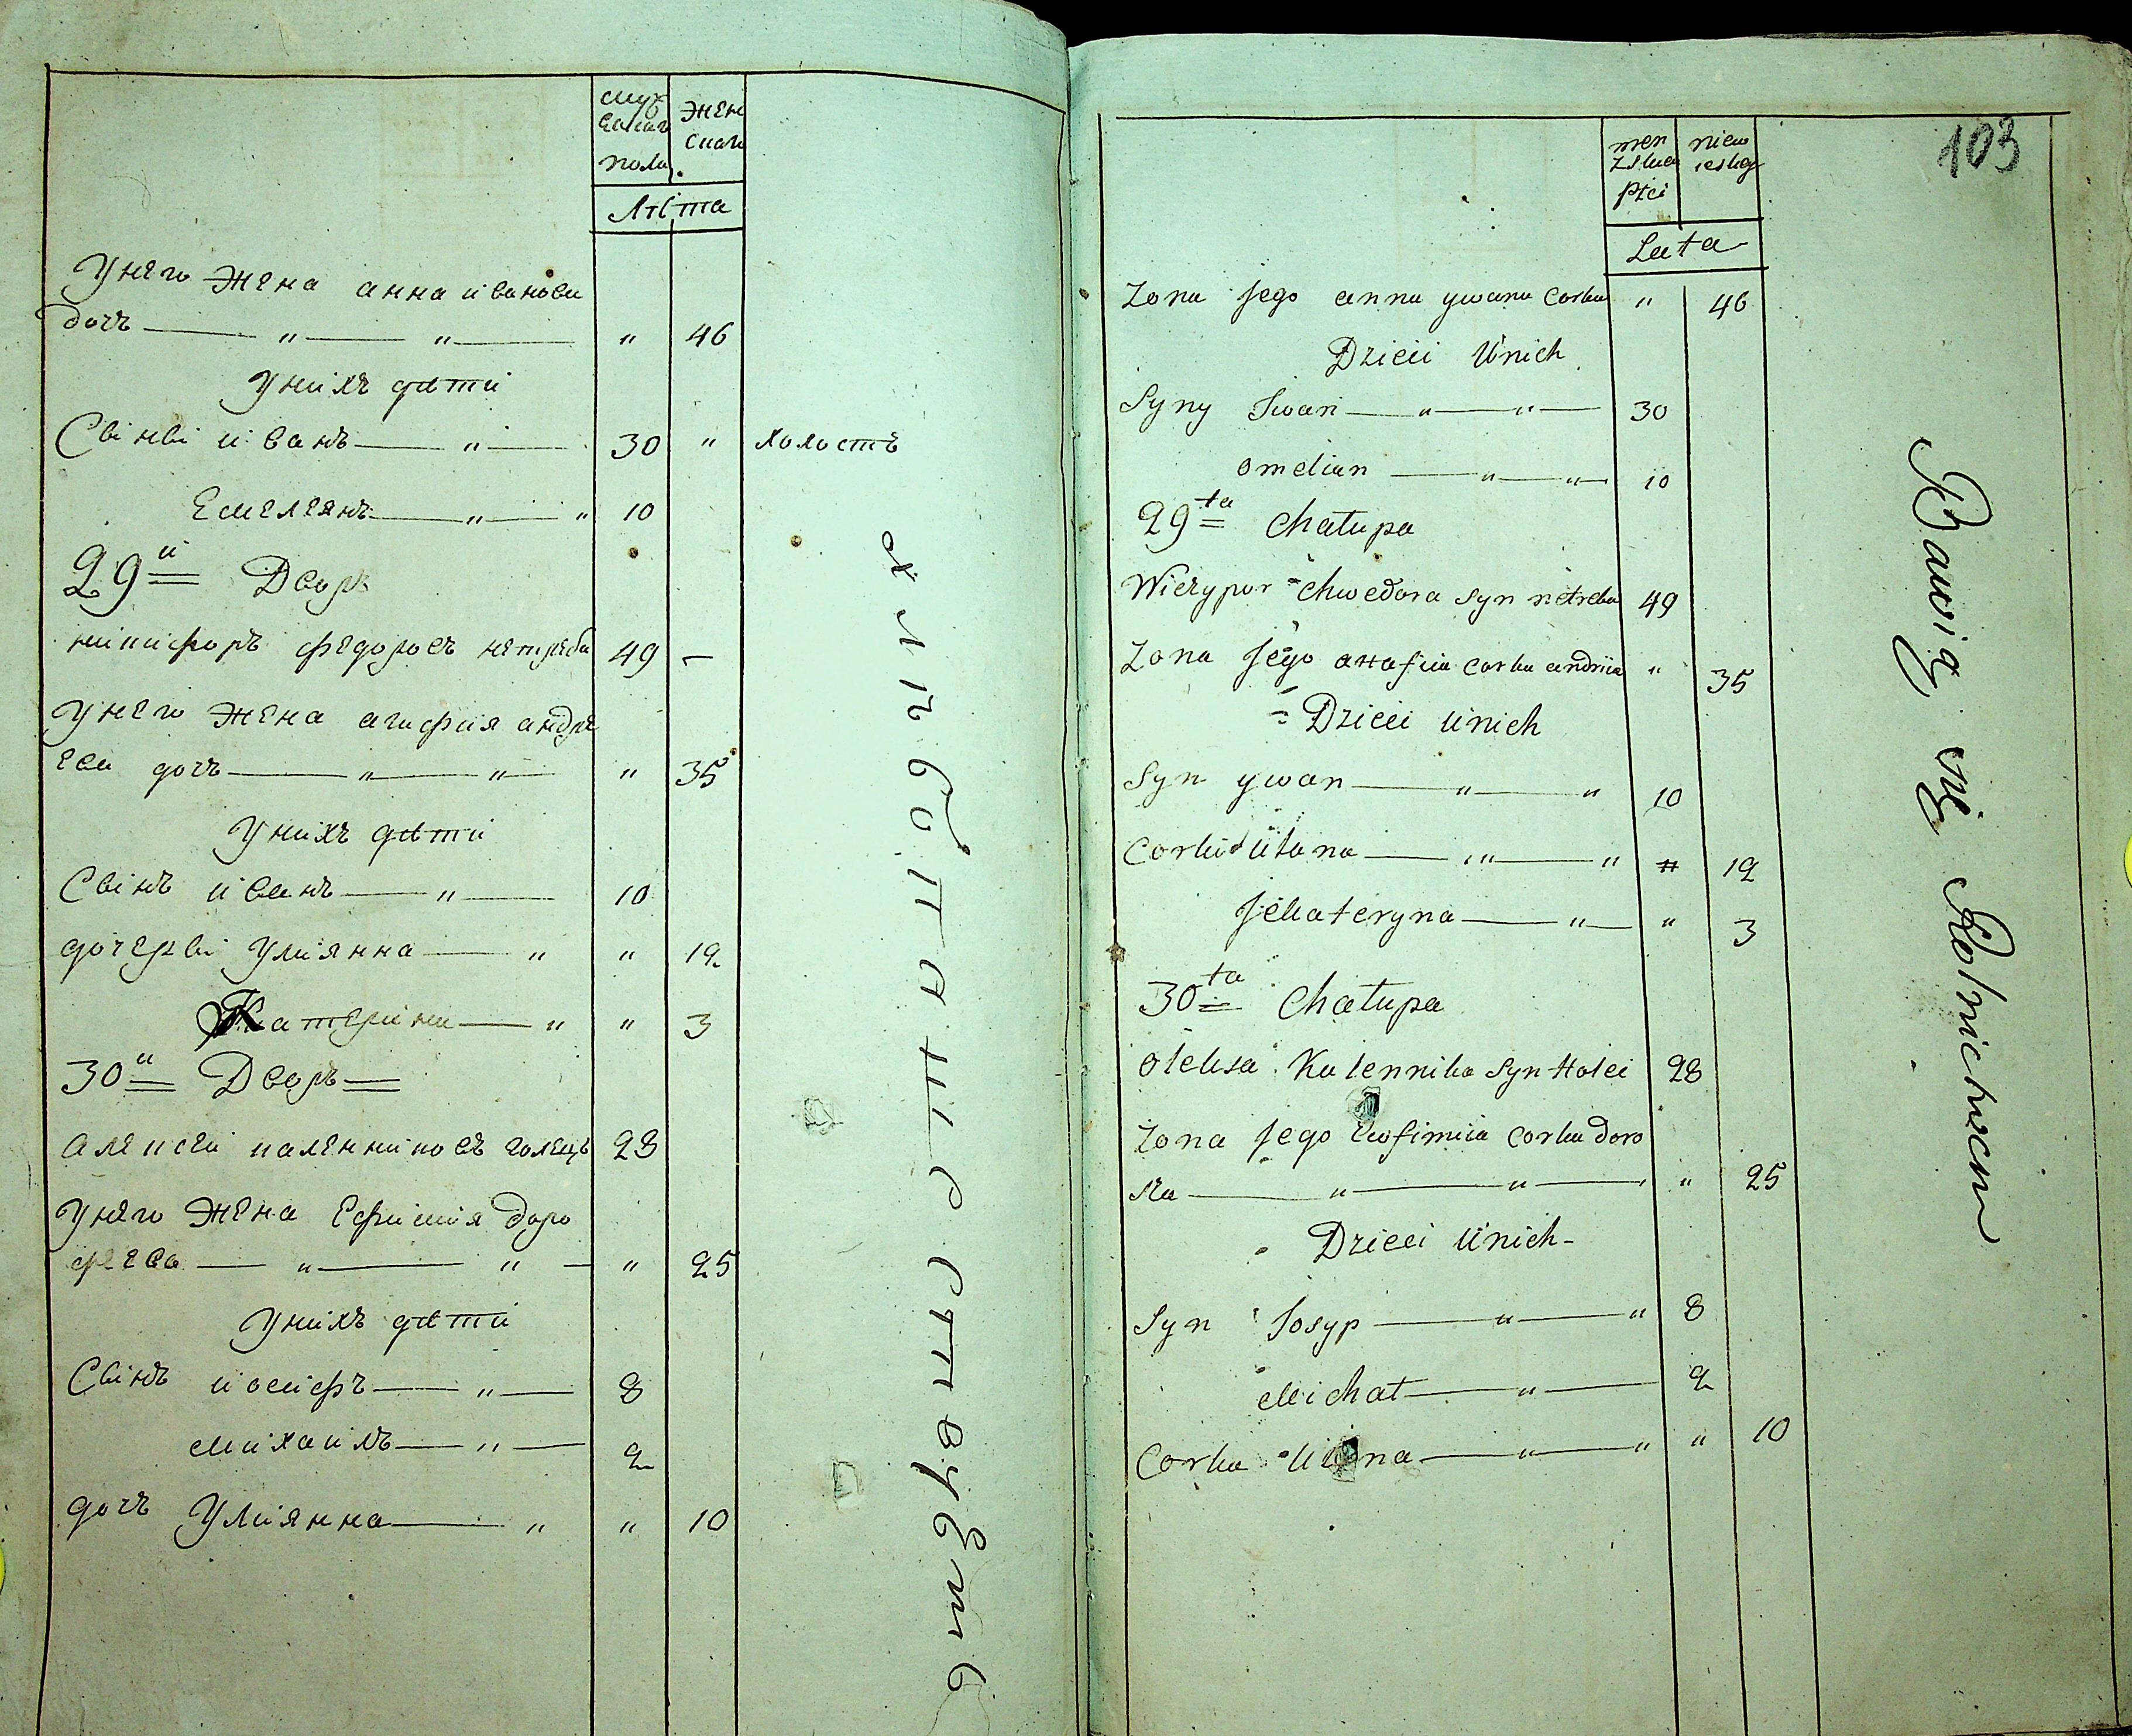 муз
каго
пола
Жен
скаго
Лѣта
У него Жена анна иванова
дочъ — " — " — " 46
У нихъ дѣти
Сыны иванъ — " — 30 " холостъ
Емелеянъ — " — " 10
29й Дворъ
никифоръ федоровъ нетреба 49 —
У него Жена агафия андре
ева дочъ — " — " — " 35
У нихъ дѣти
Сынъ иванъ — " — 10
дочеры Улиянна — " " 12
Катерина — " " 3
30й Дворъ
алексей каленниковъ голецъ 28
У него Жена Ефимия доро
феева — " — " — " 25
У нихъ дѣти
Сынъ иосифъ — " — 8
михаилъ — " — 2
дочъ Улиянна — " " 10
хлибопашествуетъ
103
men
zskiej
płci
niew
ieskiej
Lata
Zona jego anna ywana Corka " 46
Dzieci Unich
Syny Iwan — " — " — 30
omelian — " — " — 10
29ta Chałupa
Wiczypor Chwedora Syn netreba 49
Zona Jego anafiia Corka andriia " 35
Dzieci Unich
Syn ywan — " — " 10
Corki Ulana — " — " " 12
Jekateryna — " — " 3
30ta Chałupa
oleksa Kalennika Syn Holei 28
Zona Jego Ewfimiia Corka doro
sza — " — " — " 25
Dzieci Unich
Syn Josyp — " — " 8
Michał — " — 2
Corka Ulana — " — " " 10
Bawią się Rolnictwem